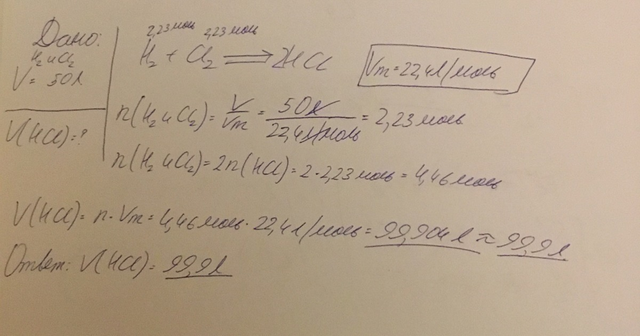 Дано:
H₂ и Cl₂
V = 50 л
V(HCl) = ?
2,23 моль 2,23 моль
H₂ + Cl₂ ⟹ 2HCl
Vm = 22,4 л/моль
n(H₂ и Cl₂) = V/Vm = 50 л/22,4 л/моль = 2,23 моль
n(H₂ и Cl₂) = 2n(HCl) = 2 · 2,23 моль = 4,46 моль
V(HCl) = n · Vm = 4,46 моль · 22,4 л/моль = 99,904 л ≈ 99,9 л
Ответ: V(HCl) = 99,9 л